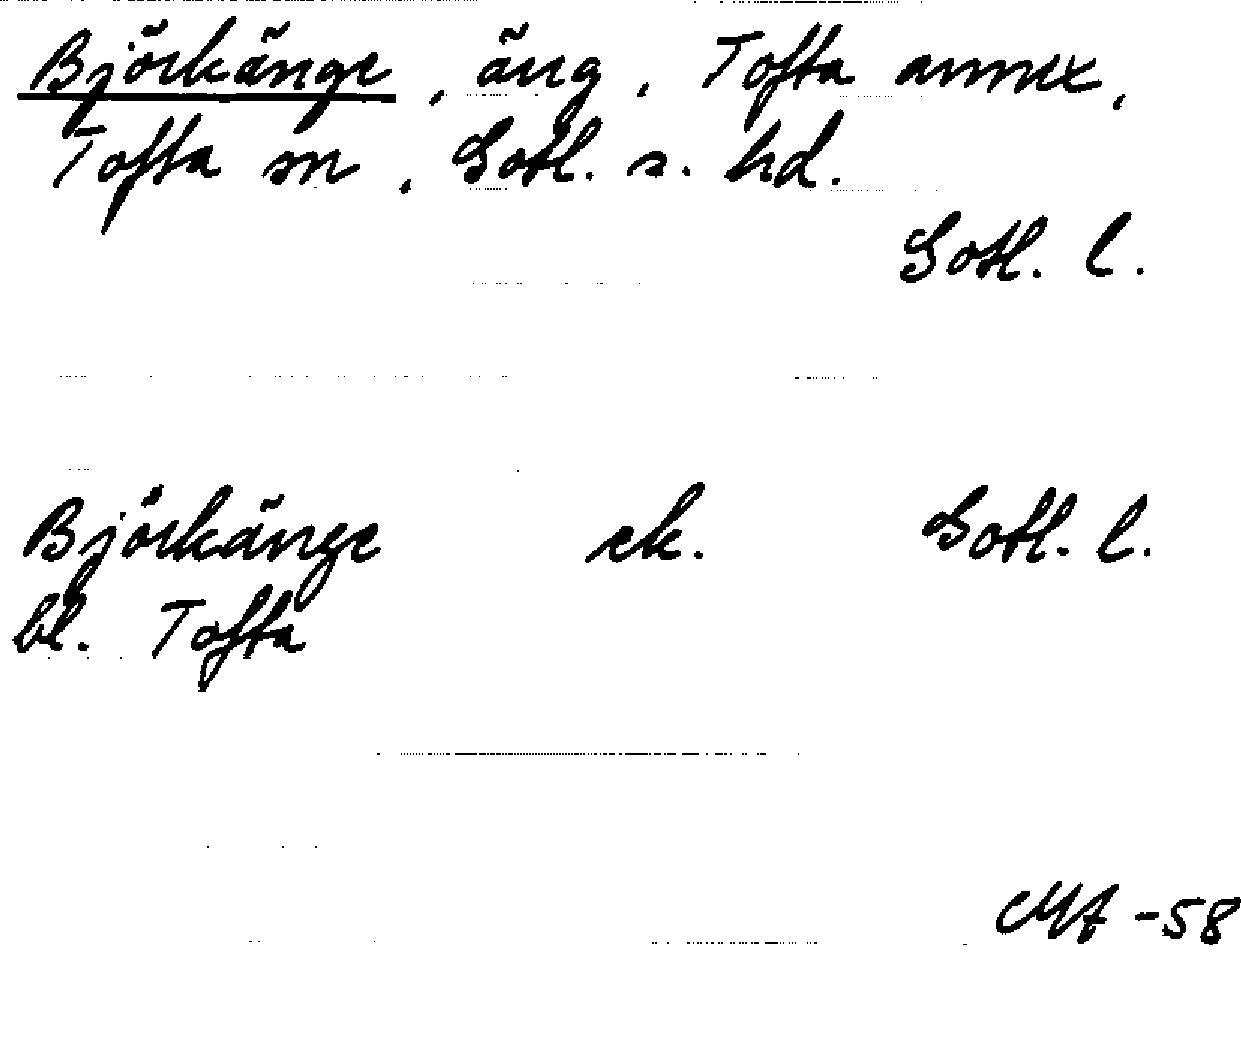 Björkänge, äng, Tofta annex,
Tofta sn, Gotl. s. hd.
Gotl. l.
Björkänge ek. Gotl. l.
bl. Tofta
MA -58